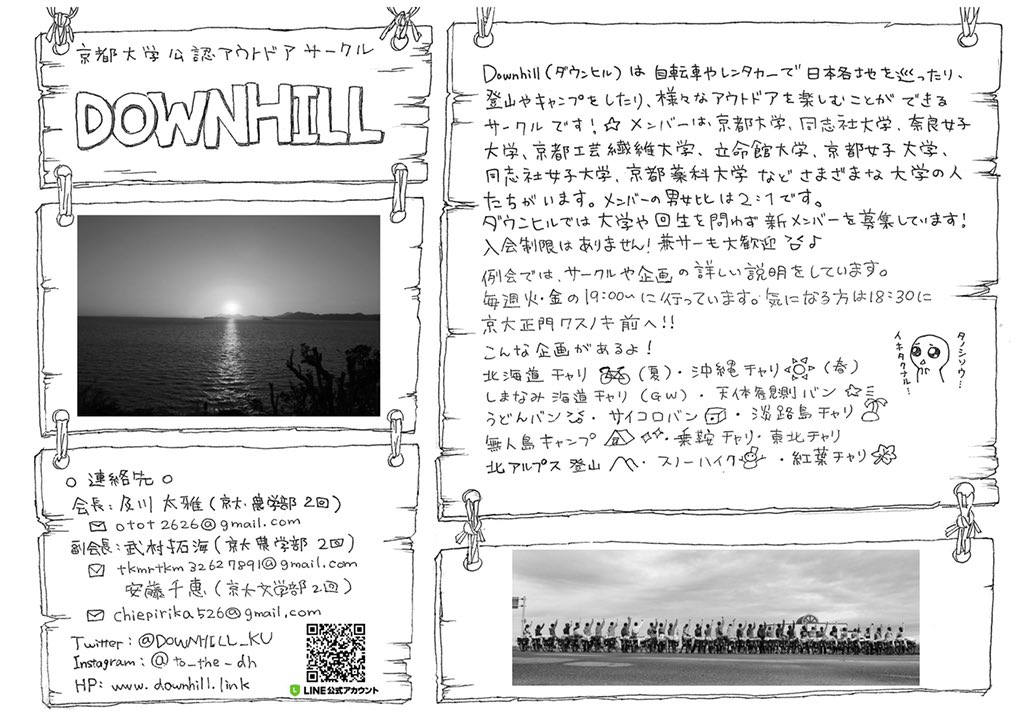 京都大学公認アウトドアサークル
DOWNHILL
Downhill(ダウンヒル)は自転車やレンタカーで日本各地を巡ったり、
登山やキャンプをしたり、様々なアウトドアを楽しむことができる
サークルです!☆メンバーは、京都大学、同志社大学、奈良女子
大学、京都工芸繊維大学、立命館大学、京都女子大学、
同志社女子大学、京都薬科大学などさまざまな大学の人
たちがいます。メンバーの男女比は2:1です。
ダウンヒルでは大学や回生を問わず新メンバーを募集しています!
入会制限はありません!兼サーも大歓迎♪
例会では、サークルや企画の詳しい説明をしています。
毎週火・金の19:00〜に行っています。気になる方は18:30に
京大正門クスノキ前へ!!
こんな企画があるよ!
北海道チャリ(夏)・沖縄チャリ(春)
しまなみ海道チャリ(GW)・天体観測バン
うどんバン・サイコロバン・淡路島チャリ
無人島キャンプ・乗鞍チャリ・東北チャリ
北アルプス登山・スノーハイク・紅葉チャリ
タノシソウ…
イキタクナル…
連絡先
会長:及川太雅(京大農学部2回)
otot2626@gmail.com
副会長:武村拓海(京大農学部2回)
tkmrtkm32627891@gmail.com
安藤千恵(京大文学部2回)
chiepirika526@gmail.com
Twitter:@DOWNHILL_KU
Instagram:@to_the_dh
HP:www.downhill.link
LINE公式アカウント